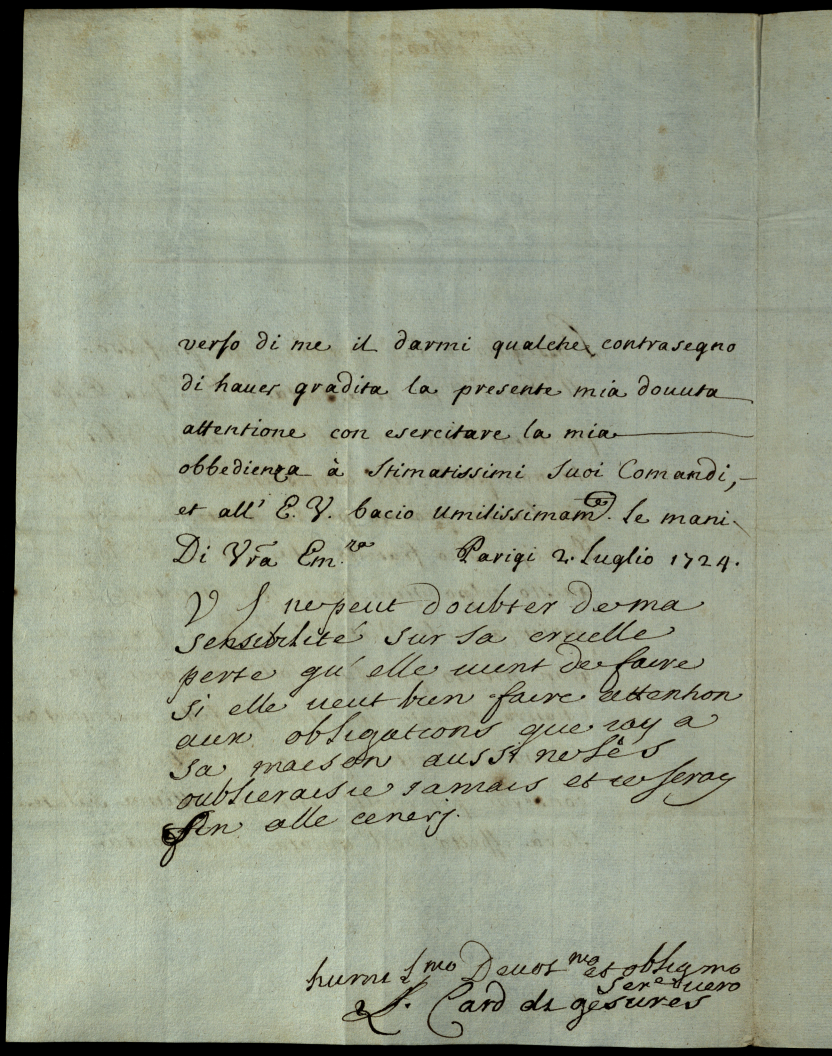 verso di me il darmi qualche contrasegno
di hauer gradita la presente mia douuta
attentione con esercitare la mia
obbedienza à stimatissimi suoi Comandi,
et all' E. V. bacio umilissimam.te le mani
Di Vrã Em.za Parigi 2. Luglio 1724.
V S ne peut doubter de ma
sensibilité sur sa cruelle
perte qu'elle uient de faire
si elle ueut bien faire attention
aux obligations que iay a
sa maison aussi ne les
oublieraisie iamais et ie seray
fin alle cenerj.
humilsmo Deuotmo et obligmo
Sere uero
L. Card de gesures